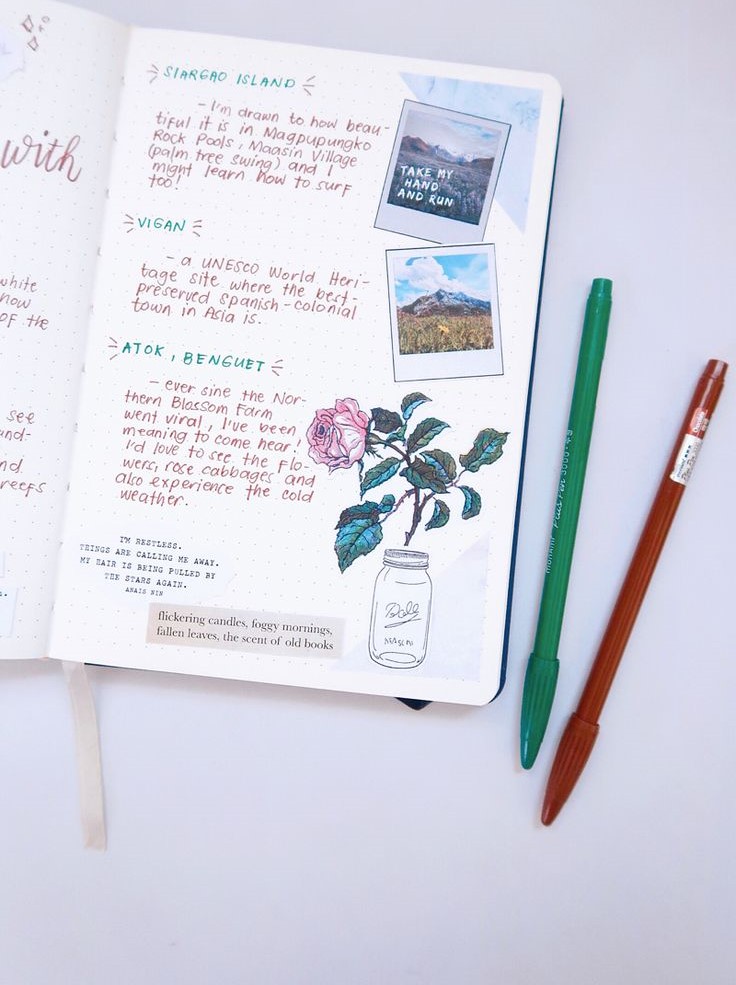 with
white
now
OF the
see
and-
nd
reefs
SIARGAO ISLAND
- I'm drawn to how beau-
tiful it is in Magpupungko
Rock Pools, Maasin Village
(palm tree swing) and I
might learn how to surf
too!
VIGAN
- a UNESCO World Heri-
tage site where the best-
preserved spanish-colonial
town in Asia is.
ATOK, BENGUET
- ever sine the Nor-
thern Blossom Farm
went viral, I've been
meaning to come hear,
I'd love to see the flo-
wers, rose cabbages and
also experience the cold
weather.
I'M RESTLESS.
THINGS ARE CALLING ME AWAY.
MY HAIR IS BEING PULLED BY
THE STARS AGAIN.
ANAIS NIN
flickering candles, foggy mornings,
fallen leaves, the scent of old books
TAKE MY
HAND
AND RUN
Ball
MASON
MONAMI Plus Pen 3000